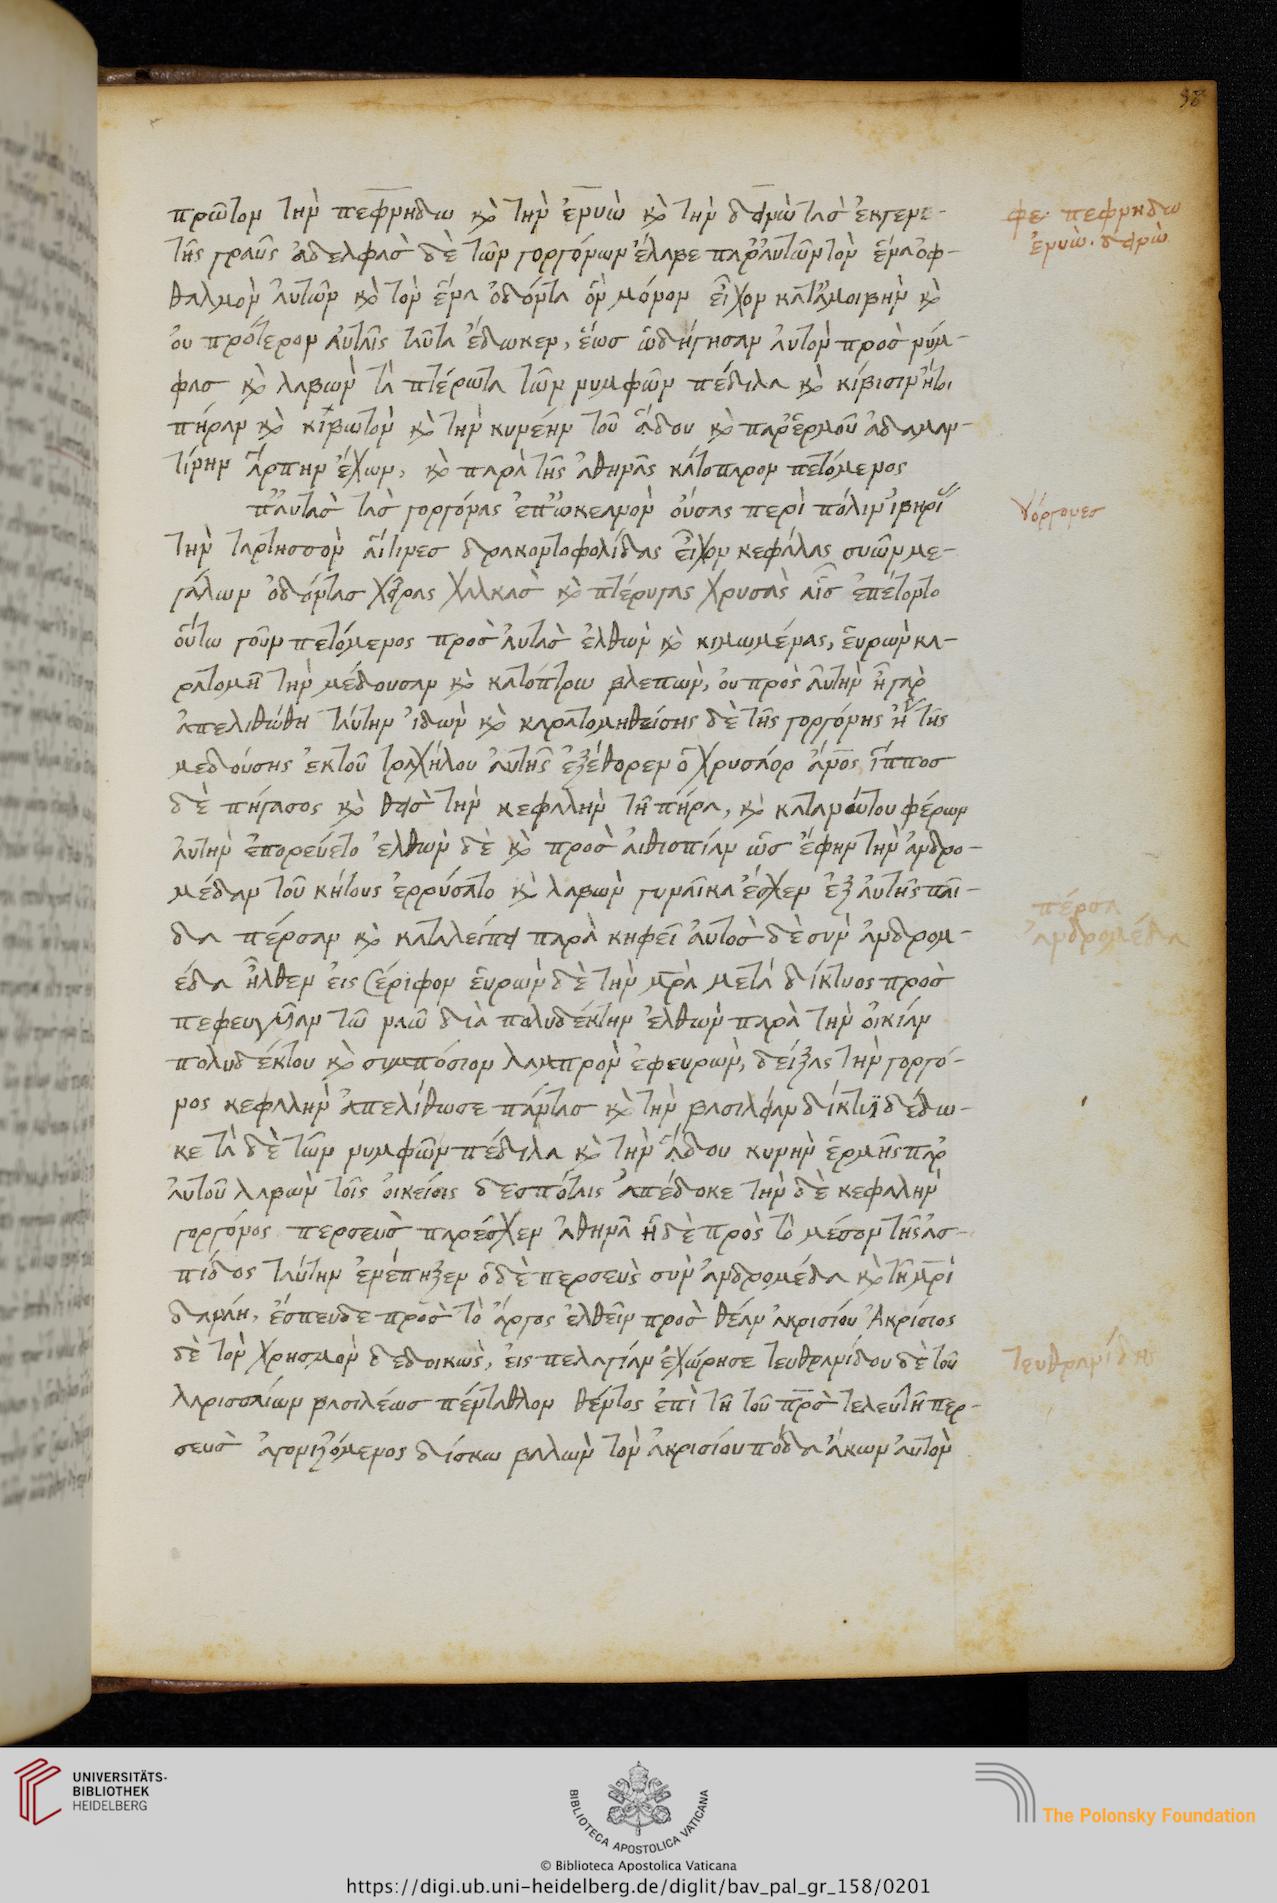 98
πρῶτον τὴν πεφρηδὼ κὸ τὴν ἐνυὼ κὸ τὴν δεινὼ τὰσ ἐκγενε-
τῆς γραῦς ἀδελφὰσ δὲ τῶν γοργόνων ἔλαβε παρ' αὐτῶν τὸν ἕνα ὀφ-
θαλμὸν αὐτῶν κὸ τὸν ἕνα ὀδόντα ὃν μόνον εἶχον κατ' ἀμοιβὴν κὸ
ου πρότερον αὐταῖς ταῦτα ἔδωκεν, ἕωσ ὡδήγησαν αὐτὸν προσ νύμ-
φασ κὸ λαβὼν τὰ πτέρωτα τῶν νυμφῶν πέδιλα κὸ κίβισιν ἤτοι
πήραν κὸ κιβωτὸν κὸ τὴν κυνέην τοῦ ἅδου κὸ παρ' ἑρμοῦ ἀδαμαν-
τίνην ἅρπην ἔχων, κὸ παρὰ τῆς ἀθηνᾶς κάτοπρον πετόμενος
π' αὐτὰσ τὰσ γοργόνας ἐπ' ὠκεανὸν οὔσας περὶ πόλιν ἰβηρί
τὴν ταρτησσὸν αἵτινεσ δρακοντοφολίδας εἶχον κεφάλας συῶν με-
γάλων ὀδόντασ χεῖρας χαλκὰσ κὸ πτέρυγας χρυσὰς αἷσ ἐπέτοντο
οὕτω γοῦν πετόμενος προσ αὐτὰσ ἐλθὼν κὸ κιμωμένας, ἑυρὼν κα-
ρατομῆ τὴν μέδουσαν κὸ κατόπτρω βλεπὼν, ου πρὸς αὐτὴν ἦ γὰρ
ἀπελιθώθη ταύτην ἰδὼν κὸ καρατομηθείσης δὲ τῆς γοργόνης ἤ τῆς
μεδούσης ἐκ τοῦ τραχήλου αὐτῆς ἐξέθορεν ὁ χρυσάορ ἄνος ἵπποσ
δὲ πήγασος κὸ θεὶσ τὴν κεφαλὴν τῆ πήρα, κὸ κατανώτου φέρων
αὐτὴν ἐπορεύετο ἐλθὼν δὲ κὸ προσ αιθιοπίαν ὥσ ἔφην τὴν ἀνδρο-
μέδαν τοῦ κήτους ἐρρύσατο κὸ λαβὼν γυναῖκα ἔσχεν ἐξ αὐτῆς παῖ-
δα πέρσαν κὸ καταλείπει παρὰ κηφεῖ ἀυτοσ δὲ σὺν ἀνδρομ-
έδα ἦλθεν ἐις σέριφον ἑυρὼν δὲ τὴν μρα μετά δίκτυος προσ
πεφευγυῖαν τῶ ναῶ διὰ πολυδέκτην ἐλθὼν παρὰ τὴν οἰκίαν
πολυδέκτου κὸ συμπόσιον λαμπρὸν ἐφευρὼν, δείξας τὴν γοργό-
νος κεφαλὴν ἀπελίθωσε πάντασ κὸ τὴν βασιλείαν δίκτυϊ δέδω-
κε τὰ δὲ τῶν νυμφῶν πέδιλα κὸ τὴν ἅδου κυνὴν ἑρμῆς παρ'
ἀυτοῦ λαβὼν τοῖς οἰκείοις δεσπόταις ἀπέδοκε τὴν δὲ κεφαλὴν
γοργόνος περσευσ παρέσχεν ἀθηνᾶ ἣ δὲ πρὸς τὸ μέσον τῆς ἀσ-
πίδος ταύτην ἐνέπηξεν ὁ δὲ περσεὺς σὺν ἀνδρομέδα κὸ τῆ μρὶ
δανάη, ἔσπευδε πρὸσ τὸ ἄργος ἐλθεῖν προσ θέαν ἀκρισίου Ἀκρίσιος
δὲ τὸν χρησμὸν δεδοικὼς, ἐις πελαγίαν ἐχώρησε τευθραμίδου δὲ τοῦ
λαρισσαίων βασιλέωσ πένταθλον θέντος ἐπὶ τῆ τοῦ προσ τελευτῆ περ-
σευσ ἀγονιζόμενος δίσκω βαλὼν τὸν ἀκρισίου πόδα ἄκων ἀυτὸν
φε. πεφρηδω
ἐνυὼ. δεινὼ
γόργονες
πέρσα
ἀνδρομέδα
τευθραμίδης
UNIVERSITÄTS-
BIBLIOTHEK
HEIDELBERG
BIBLIOTECA APOSTOLICA VATICANA
The Polonsky Foundation
© Biblioteca Apostolica Vaticana
https://digi.ub.uni-heidelberg.de/diglit/bav_pal_gr_158/0201